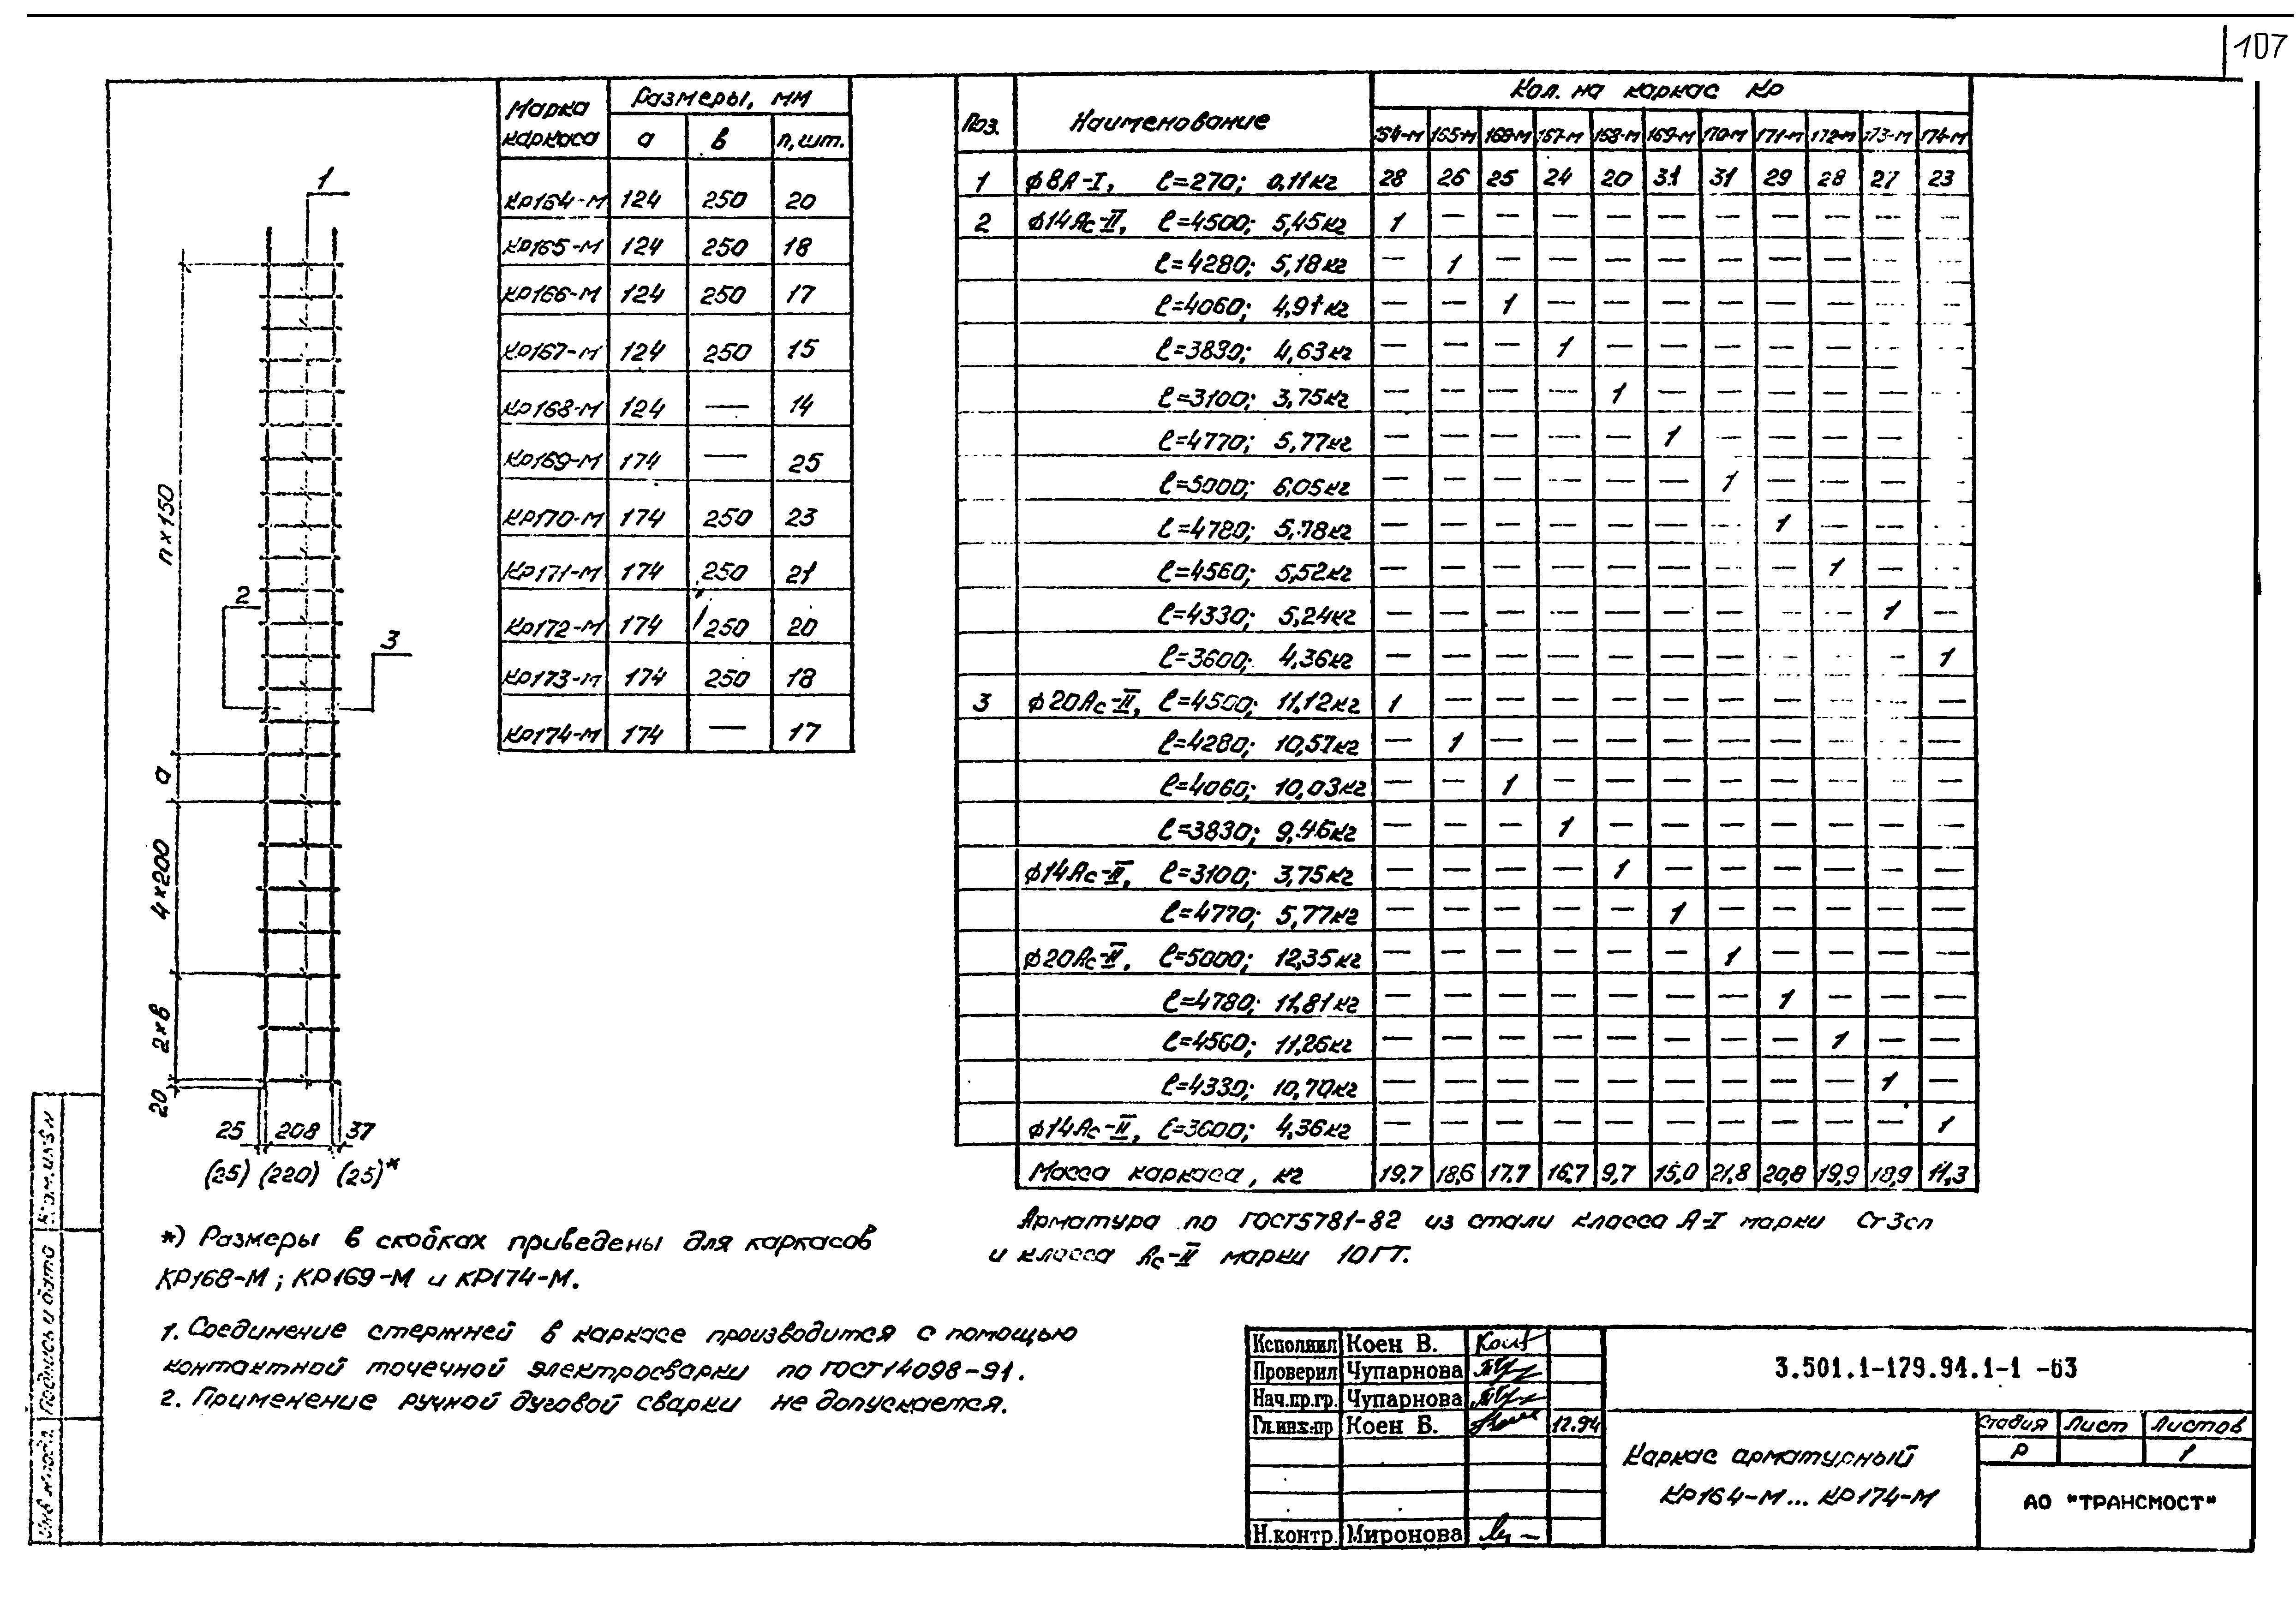 107
Марка каркаса | Размеры, мм
а | в | n, шт.
КР164-М 124 250 20
КР165-М 124 250 18
КР166-М 124 250 17
КР167-М 124 250 15
КР168-М 124 — 14
КР169-М 174 — 25
КР170-М 174 250 23
КР171-М 174 250 21
КР172-М 174 250 20
КР173-М 174 250 18
КР174-М 174 — 17
Поз. | Наименование | Кол. на каркас Кр
164-М 165-М 166-М 167-М 168-М 169-М 170-М 171-М 172-М 173-М 174-М
1 ϕ8А-I, ℓ=270; 0,11кг 28 26 25 24 20 31 31 29 28 27 23
2 ϕ14Ас-II, ℓ=4500; 5,45кг 1 — — — — — — — — — —
ℓ=4280; 5,18кг — 1 — — — — — — — — —
ℓ=4060; 4,91кг — — 1 — — — — — — — —
ℓ=3830; 4,63кг — — — 1 — — — — — — —
ℓ=3100; 3,75кг — — — — 1 — — — — — —
ℓ=4770; 5,77кг — — — — — 1 — — — — —
ℓ=5000; 6,05кг — — — — — — 1 — — — —
ℓ=4780; 5,78кг — — — — — — — 1 — — —
ℓ=4560; 5,52кг — — — — — — — — 1 — —
ℓ=4330; 5,24кг — — — — — — — — — 1 —
ℓ=3600; 4,36кг — — — — — — — — — — 1
3 ϕ20Ас-II, ℓ=4500; 11,12кг 1 — — — — — — — — — —
ℓ=4280; 10,57кг — 1 — — — — — — — — —
ℓ=4060; 10,03кг — — 1 — — — — — — — —
ℓ=3830; 9,46кг — — — 1 — — — — — — —
ϕ14Ас-II, ℓ=3100; 3,75кг — — — — 1 — — — — — —
ℓ=4770; 5,77кг — — — — — 1 — — — — —
ϕ20Ас-II, ℓ=5000; 12,35кг — — — — — — 1 — — — —
ℓ=4780; 11,81кг — — — — — — — 1 — — —
ℓ=4560; 11,26кг — — — — — — — — 1 — —
ℓ=4330; 10,70кг — — — — — — — — — 1 —
ϕ14Ас-II, ℓ=3600; 4,36кг — — — — — — — — — — 1
Масса каркаса, кг 19,7 18,6 17,7 16,7 9,7 15,0 21,8 20,8 19,9 18,9 11,3
1
2
3
n×150
а
4×200
2×в
20
25 208 37
(25) (220) (25)*
*) Размеры в скобках приведены для каркасов
КР168-М; КР169-М и КР174-М.
1. Соединение стержней в каркасе производится с помощью
контактной точечной электросварки по ГОСТ14098-91.
2. Применение ручной дуговой сварки не допускается.
Арматура по ГОСТ5781-82 из стали класса А-I марки Ст3сп
и класса Ас-II марки 10ГТ.
Исполнил Коен В.
Проверил Чупарнова
Нач.пр.гр. Чупарнова
Гл.инж.пр Коен В. 12.94
Н.контр. Миронова
3.501.1-179.94.1-1 -63
Каркас арматурный
КР164-М... КР174-М
Стадия Лист Листов
Р 1
АО "ТРАНСМОСТ"
Подпись и дата
Инв № подл.